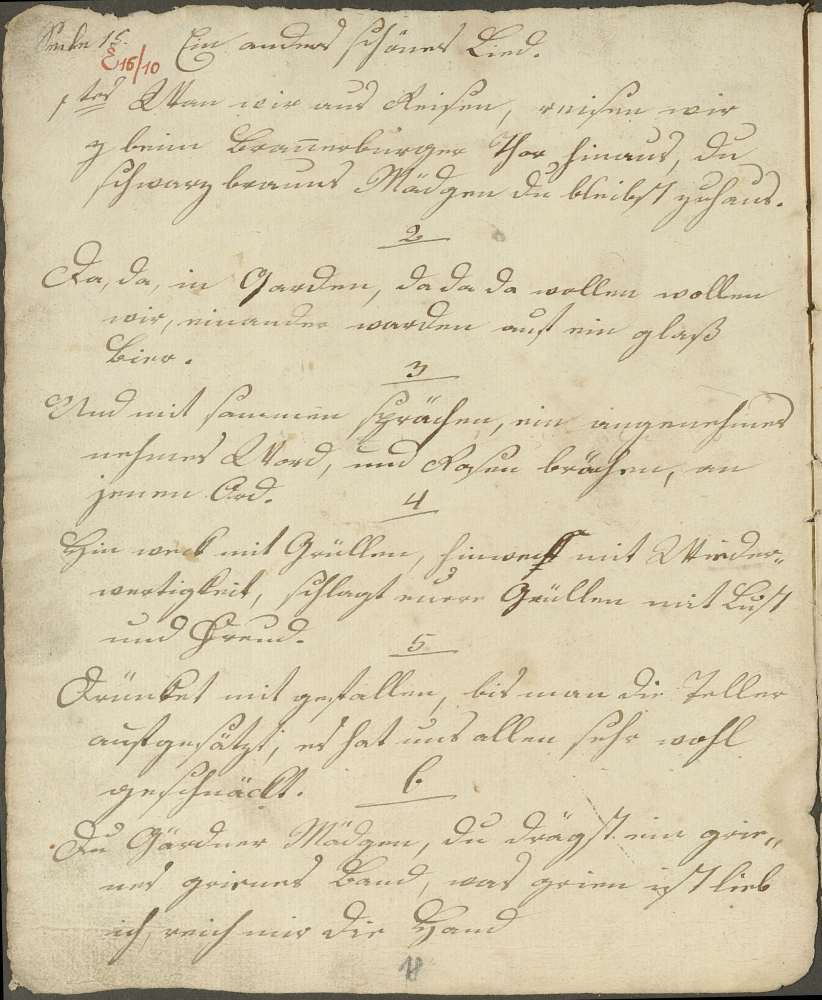 Seite 15.
E 15/10
Ein anders schönes Lied.
1tes Wan wir aus Reisen, reisen wir
z beim Brannerburger Thor hinaus, du
schwarz brauns Mädgen du bleibst zuhaus.
2
Da, da, in Garden, da da da wollen wollen
wir, einander warden auf ein glaß
Bier.
3
Und mit sammen sprächen, ein angenehmes
nehmes Word, und Rosen brächen, an
jenen Ord.
4
Hin weck mit Grüllen, hinweck mit Wieder„
wertigkeit, schlagt eure Grüllen mit Lust
und Freud.
5
Drünket mit gefallen, bis man die Teller
aufgesätzt, es hat uns allen sehr wohl
geschmäckt.
6.
Du Gärdner Mädgen, du drägst ein grie„
nes grienes Band, was grien ist lieb
ich, reich mir die Hand
18